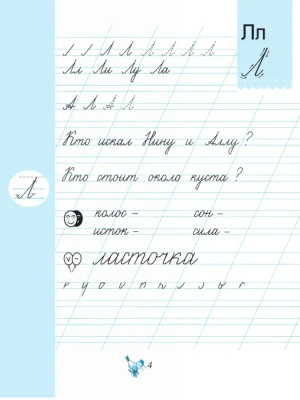 Лл
Л
Л Л Л Л Л Л
Лл Ли Лу Ла
А Л А Л
Кто искал Нину и Аллу?
Кто стоит около куста?
Л
колос – сон –
исток – сила –
ласточка
4